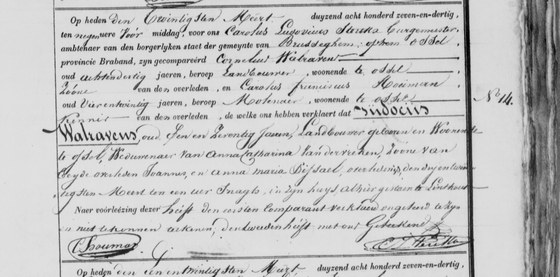 Op heden den Twintigsten Meert duyzend acht honderd zeven-en-dertig,
ten negen ure voor middag, voor ons Carolus Ludovicus Burgemeester
ambtenaer van den borgerlyken staet der gemeynte van Brusseghem; opzom ossel
provincie Braband, zyn gecompareird Cornelius Walravens
oud achtendertig jaeren, beroep Landbouwer, woonende te ossel
Zoone van den overleden, en Carolus franciscus Houman
oud Vierentwintig jaeren, beroep Molenaer, woonende te ossel
Kennis van den overleden, de welke ons hebben verklaert dat Judocus
No. 14.
Walravens, oud Een en Zeventig Jaeren, Landbouwer geboren en Woonende
te ossel, Weduwenaer van Anna Catharina Vanderveken, Zoone van
beyde overleden Joannes, en Anna maria overleden, den
Meert ten een ure Snagts, in zyn huys alhier
Naer voorlëezing dezer heeft den eersten Comparant verklaert ongeleerd te zyn
niet te konnen teekenen, den tweeden heeft met ons Geteekend
C Houman
Op heden den een entwintigsten Meert duyzend acht honderd zeven-en-dertig,